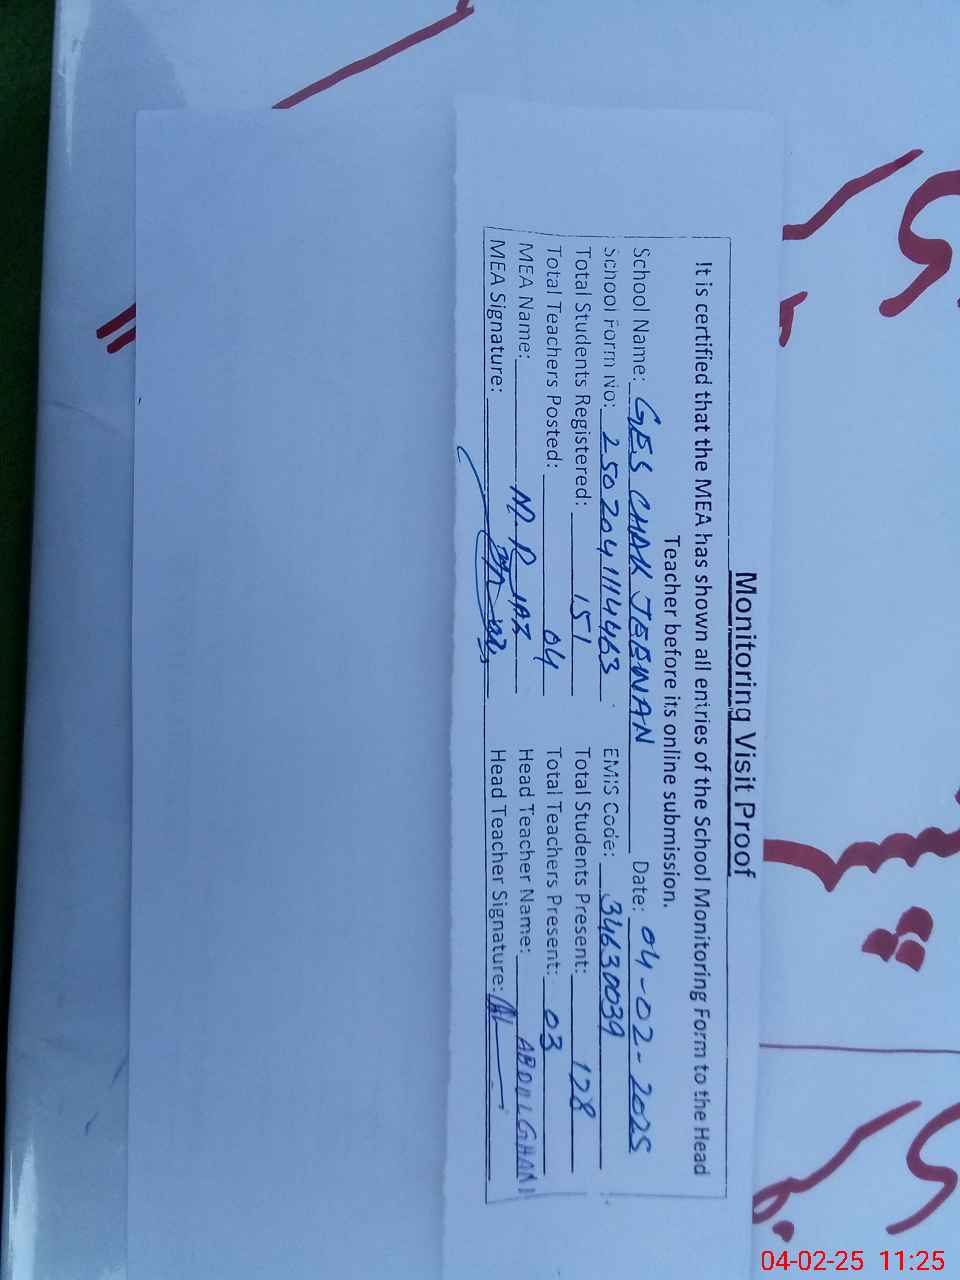 Monitoring Visit Proof
It is certified that the MEA has shown all entries of the School Monitoring Form to the Head
Teacher before its online submission.
School Name: GES CHAK JEEWAN Date: 04-02-2025
School Form No: 2502041114463 EMIS Code: 34630039
Total Students Registered: 151 Total Students Present: 128
Total Teachers Posted: 04 Total Teachers Present: 03
MEA Name: M. Riaz Head Teacher Name: ABDUL GHANI
MEA Signature: Head Teacher Signature:
04-02-25 11:25